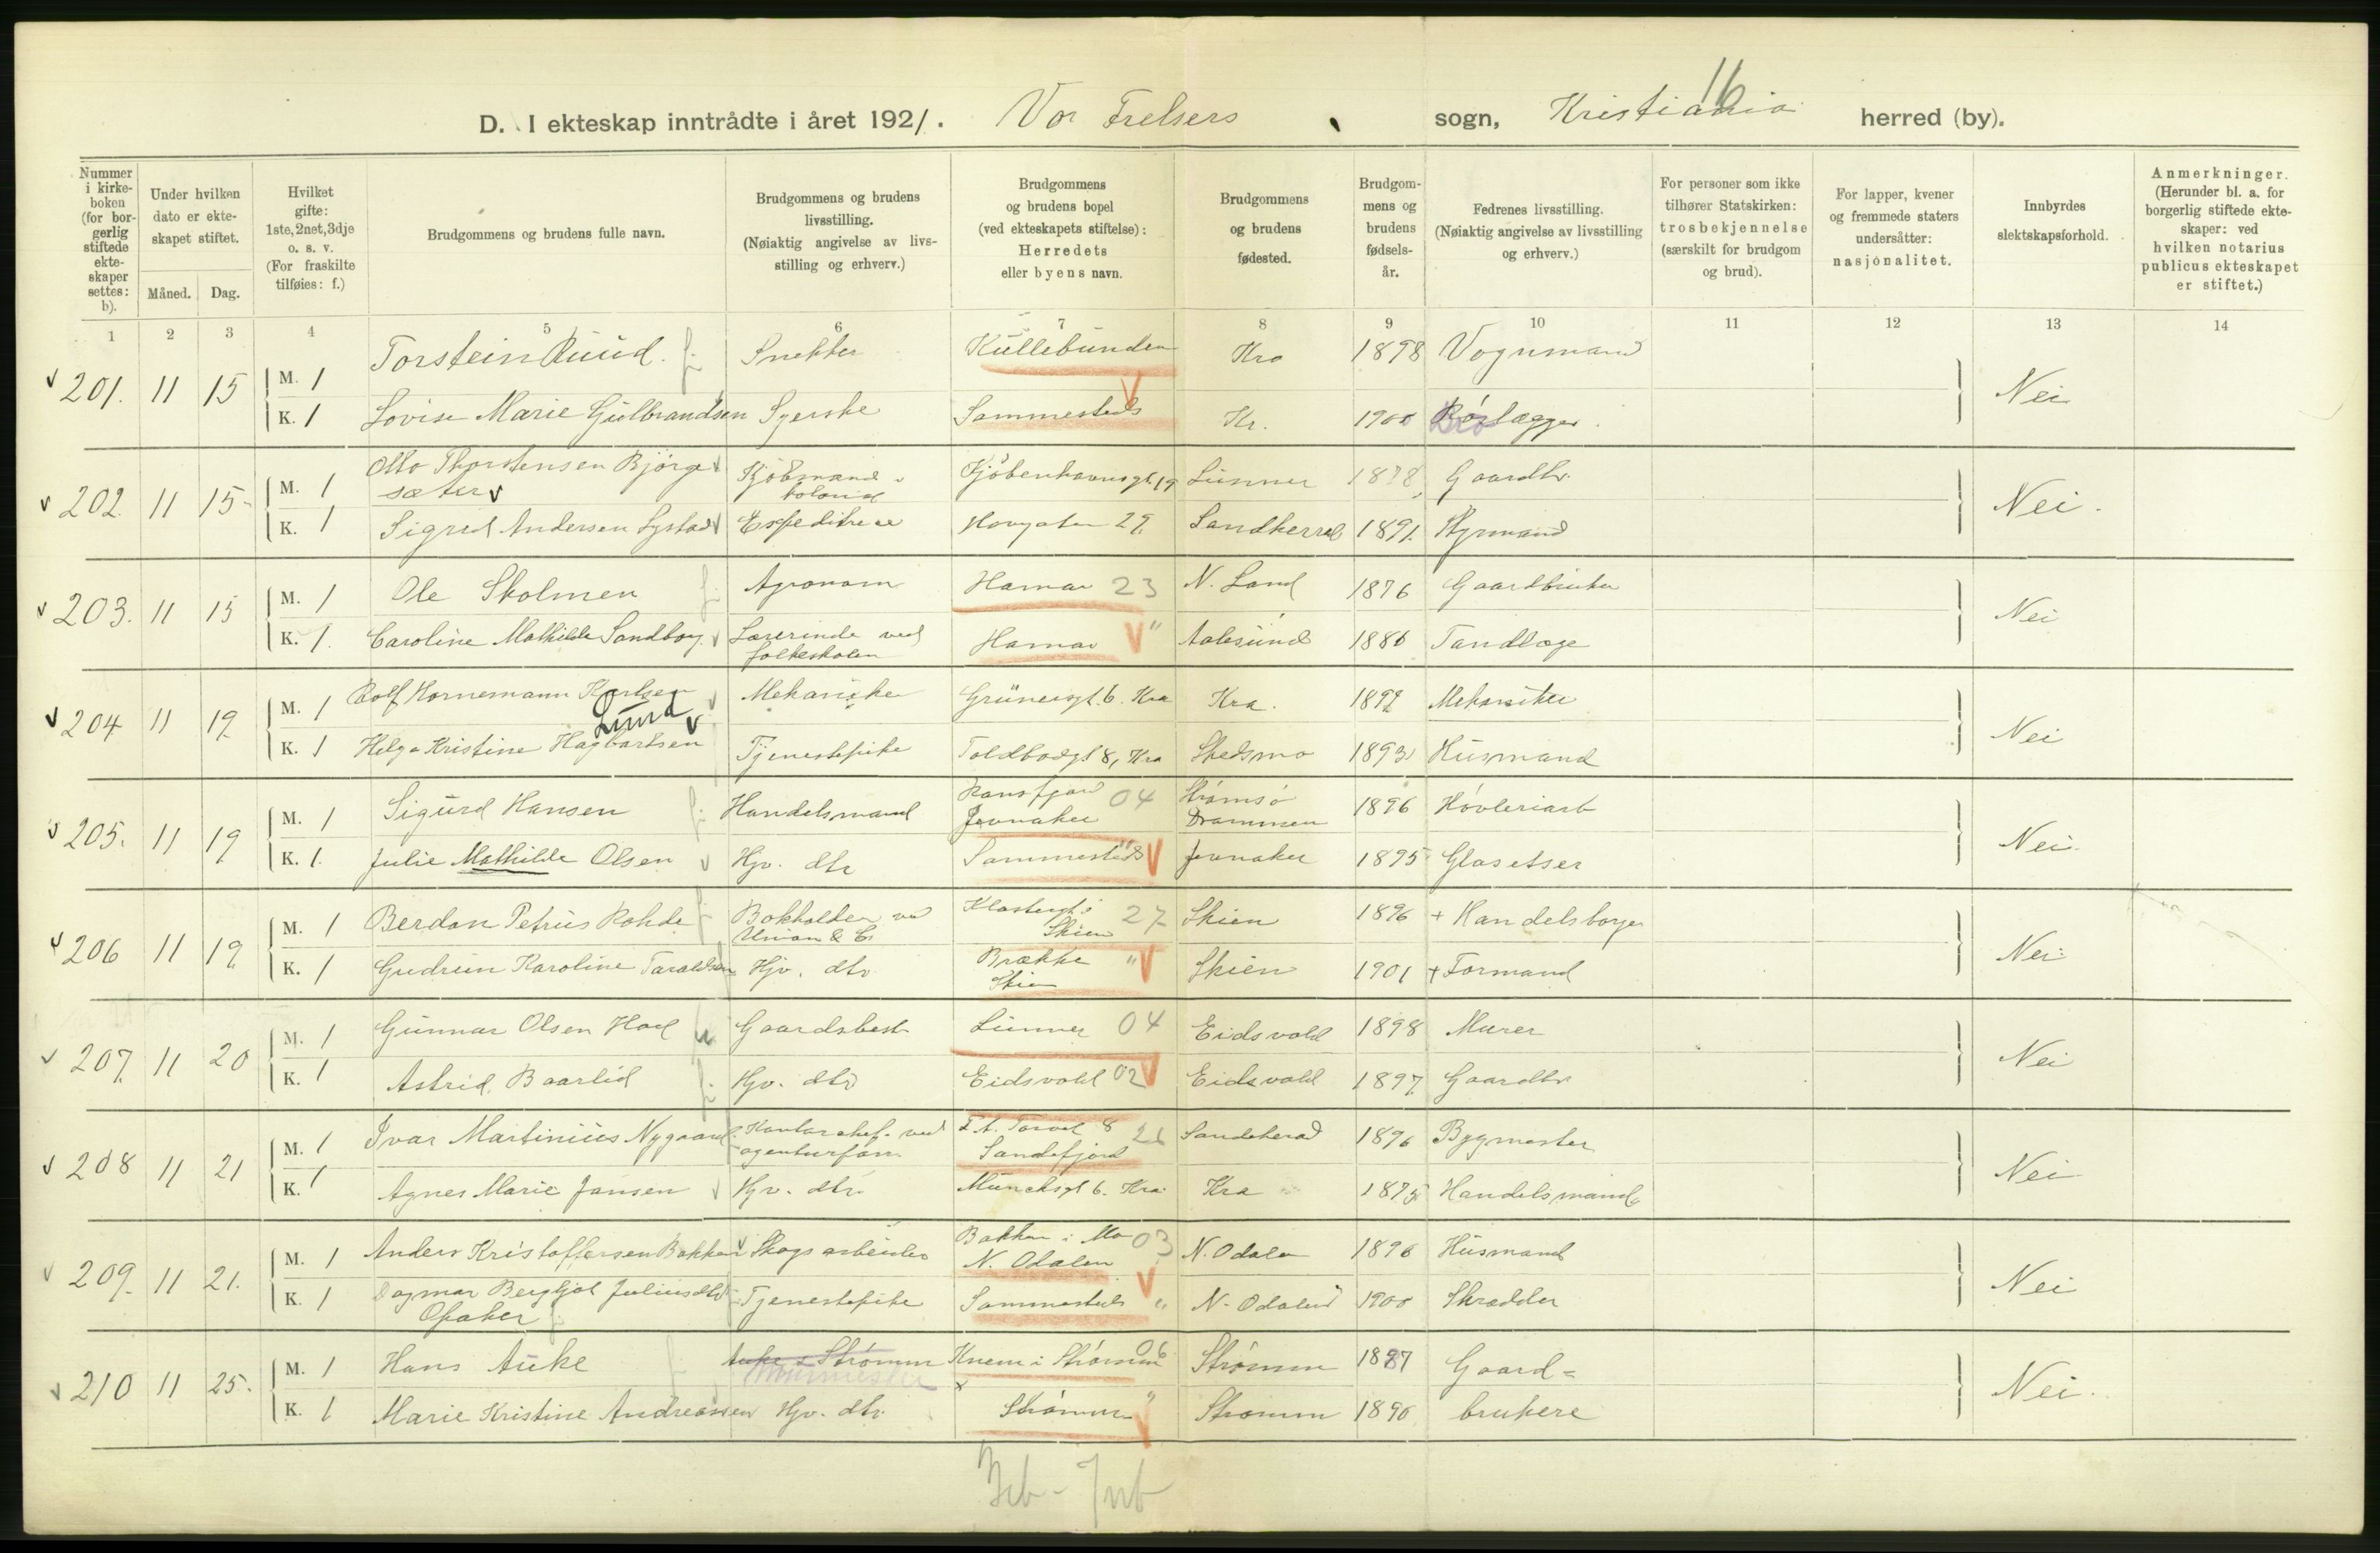 16
D. I ekteskap inntrådte i året 1921. Vor Frelsers sogn, Kristiania herred (by).
Nummer i kirkeboken (for borgerlig stiftede ekteskaper settes: b).
Under hvilken dato er ekteskapet stiftet.
Måned. Dag.
Hvilket gifte: 1ste, 2net, 3dje o. s. v. (For fraskilte tilføies: f.)
Brudgommens og brudens fulle navn.
Brudgommens og brudens livsstilling. (Nøiaktig angivelse av livsstilling og erhverv.)
Brudgommens og brudens bopel (ved ekteskapets stiftelse): Herredets eller byens navn.
Brudgommens og brudens fødested.
Brudgommens og brudens fødselsår.
Fedrenes livsstilling. (Nøiaktig angivelse av livsstilling og erhverv.)
For personer som ikke tilhører Statskirken: trosbekjennelse (særskilt for brudgom og brud).
For lapper, kvener og fremmede staters undersåtter: nasjonalitet.
Innbyrdes slektskapsforhold.
Anmerkninger. (Herunder bl. a. for borgerlig stiftede ekteskaper: ved hvilken notarius publicus ekteskapet er stiftet.)
1 2 3 4 5 6 7 8 9 10 11 12 13 14
201. 11 15 M. 1 Torstein Ruud Snekker Kullebunden Kra 1898 Vognmand Nei
K. 1 Lovise Marie Gulbrandsen Syerske Sammesteds Kr. 1900 Rørlægger
202. 11 15 M. 1 Otto Thorstensen Bjørgesæter Kjøbmand kolonial Kjøbenhavnsgt. 19 Lunner Gaardbr. Nei.
K. 1 Sigrid Andersen Systad Expeditrise Hovgaten 29. Sandherred 1891. Styrmand
203. 11 15 M. 1 Ole Skolmen Agronom Hamar 23 N. Land 1876 Gaardbruker Nei
K. 1. Caroline Mathilde Sandborg Lærerinde ved folkeskolen Hamar " Aalesund 1886 Tandlæge
204 11 19 M. 1 Rolf Hornemann Karlsen Lund Mekaniker Grünersgt. 6. Kra Kra. 1892 Mekaniker Nei
K. 1 Helga Kristine Hagbartsen Tjenestepike Toldbodgt 8, Kra Skedsmo 1893 Husmand
205. 11 19 M. 1 Sigurd Hansen Handelsmand Ransfjord Jevnaker 04 Strømsø Drammen 1896 Høvleriarb Nei.
K. 1. Julie Mathilde Olsen Hjv. dtr Sammesteds Jevnaker 1895 Glasetser
206 11 19 M. 1 Berdon Petrus Rohde Bokholder ved Union & Co Klostergt. Skien 27 Skien 1896 + Handelsborger Nei.
K. 1 Gudrun Karoline Taraldsen Hjv. dtr. Brække Skien " Skien 1901 + Formand
207. 11 20 M. 1 Gunnar Olsen Hoel Gaardsbest. Lunner 04 Eidsvold 1898 Murer Nei
K. 1 Astrid Baarlid Hjv. dtr Eidsvold 02 Eidsvold 1897 Gaardbr
208 11 21 M. 1 Ivar Martinius Nygaard Kontorchef ved agenturforr. Torvet 8 Sandefjord 26 Sandeherad 1896 Bygmester Nei
K. 1 Agnes Marie Jansen Hjv. dtr. Munchsgt 6. Kra Kra 1895 Handelsmand
209. 11 21. M. 1 Anders Kristoffersen Bakken Skogsarbeider Bakken i Mo N. Odalen 03 N. Odalen 1896 Husmand Nei
K. 1 Dagmar Bergljot Juliusdtr Opaker Tjenestepike Sammesteds " N. Odalen 1900 Skrædder
210 11 25. M. 1 Hans Auke Auke i Strømm Knem i Strømm 06 Strømm 1887 Gaard= Nei.
K. 1 Marie Kristine Andreassen Hjv. dtr. Strømm " Strømm 1890 brukere